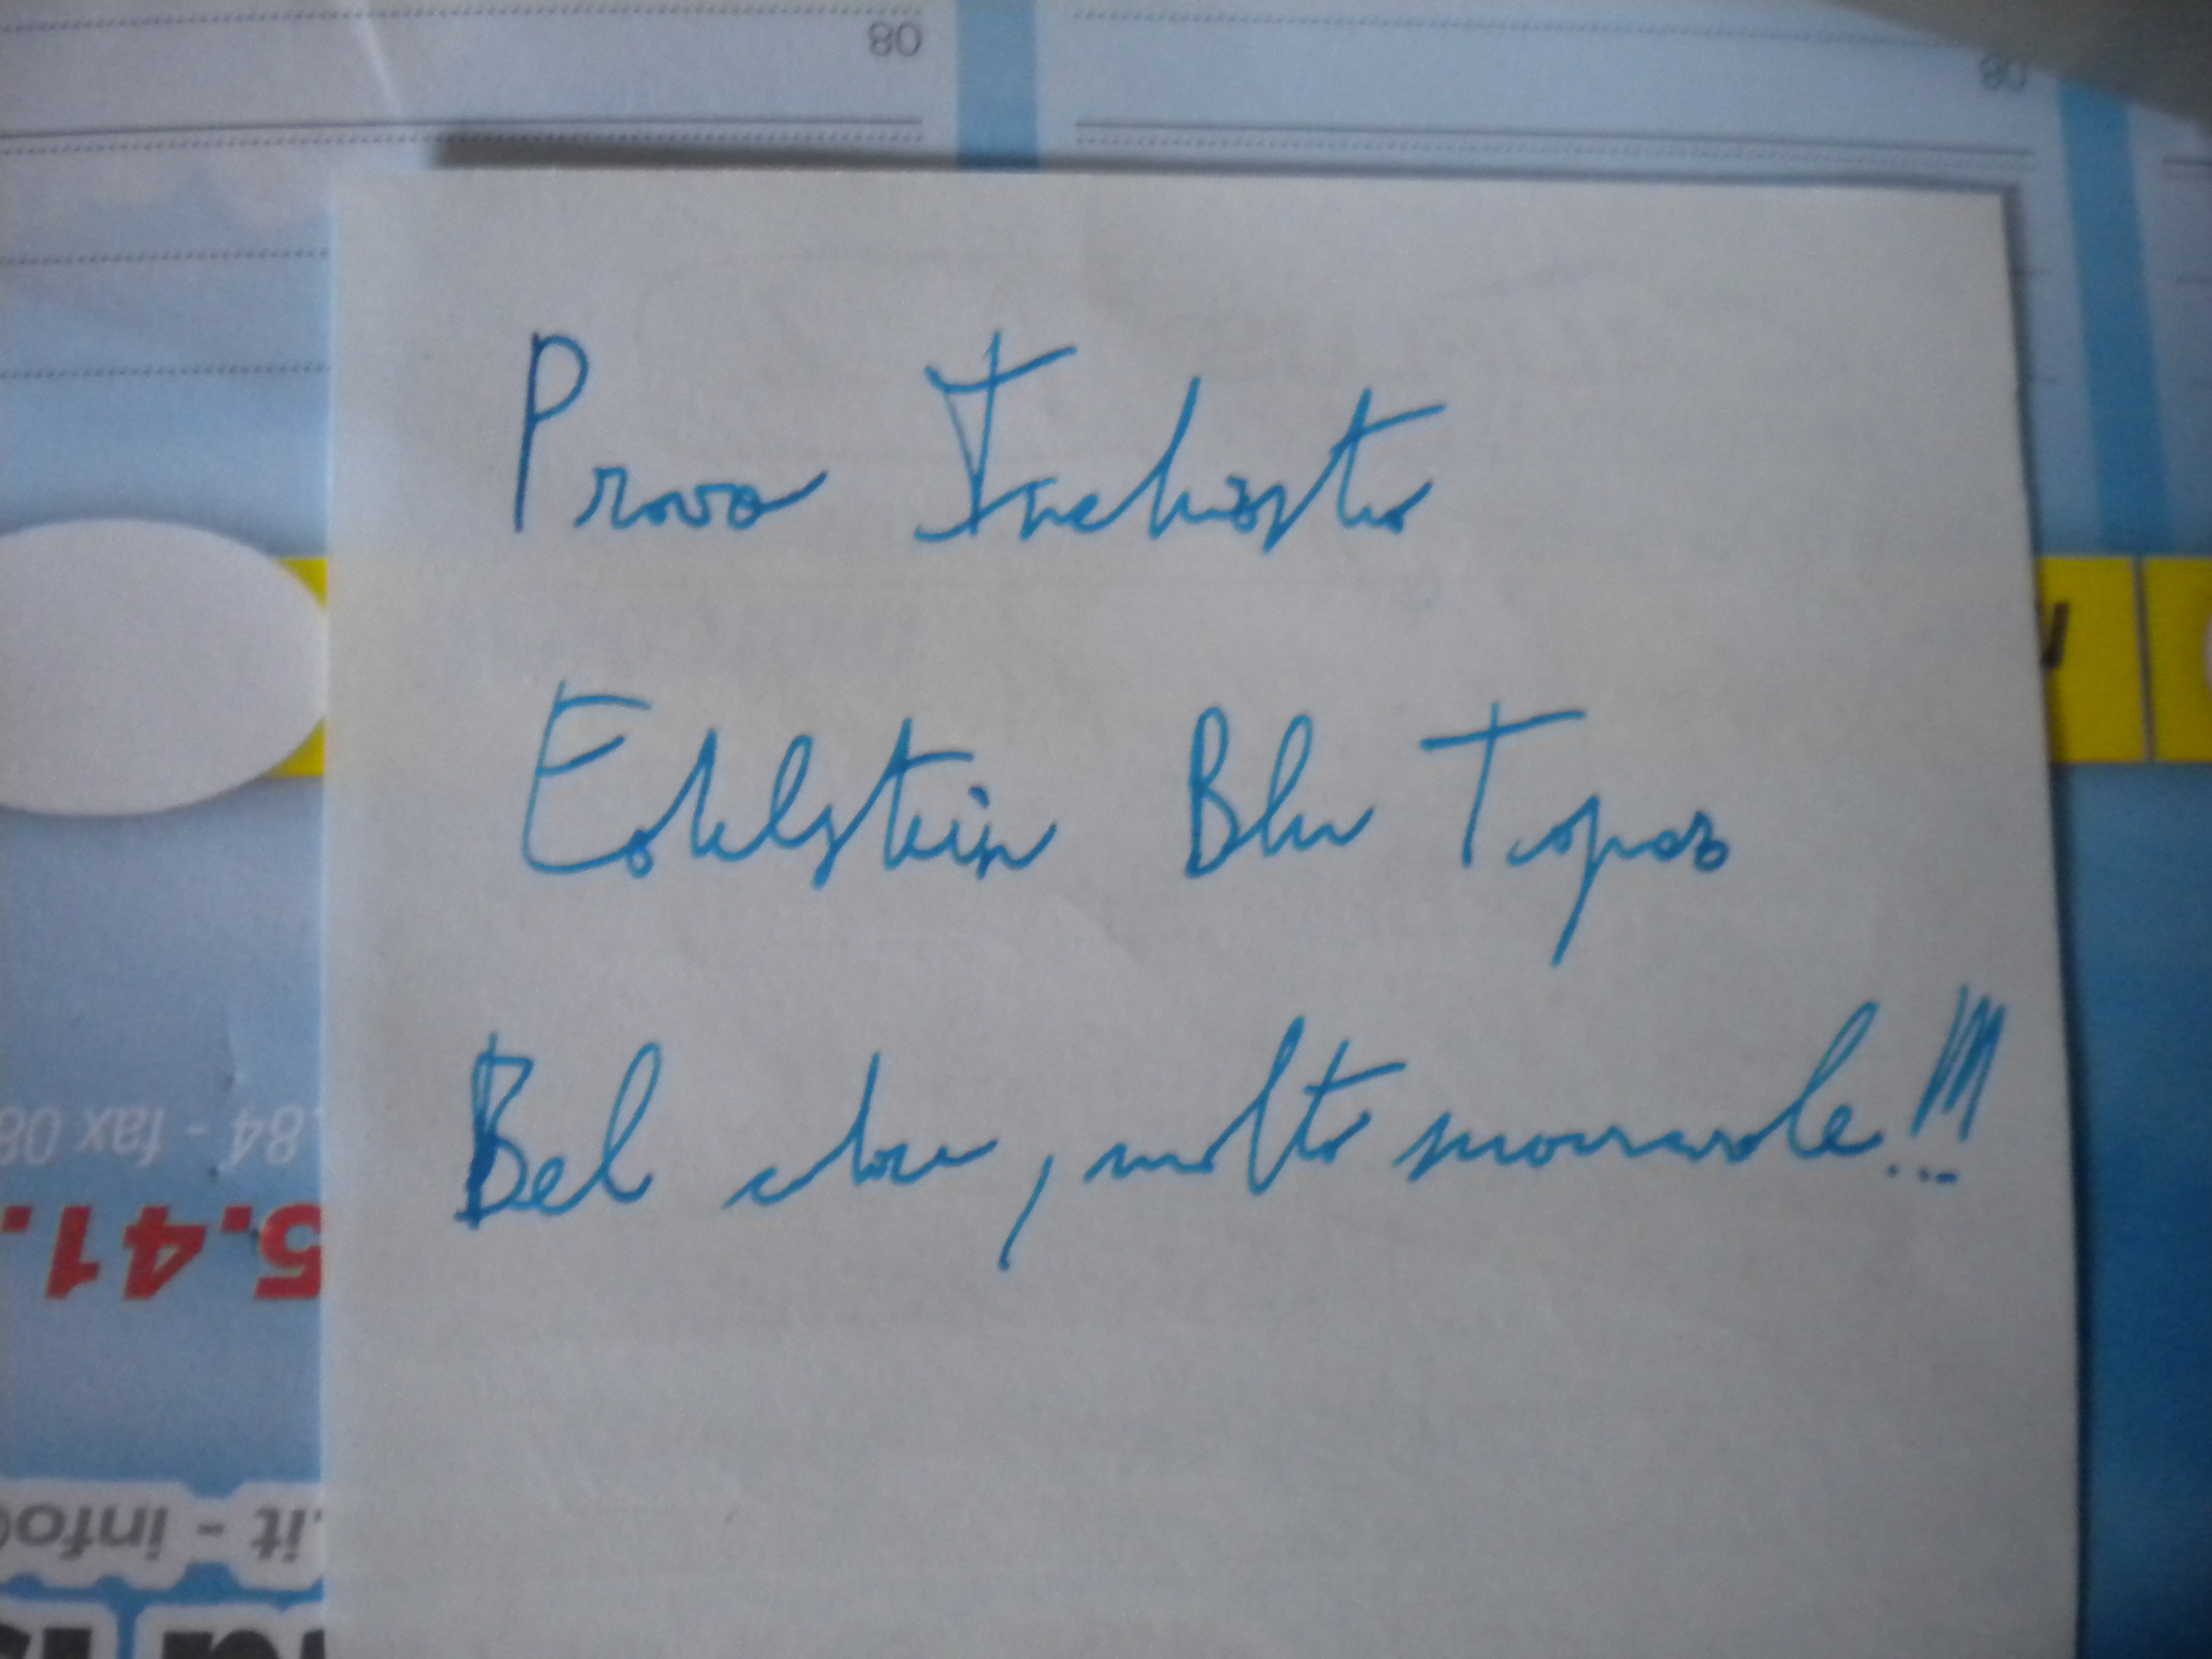 08
08
Prova Inchiostro
Edelstein Blu Topaz
.84 - fax 08
Bel colore, molto scorrevole!!!
5.41.
.it - info@